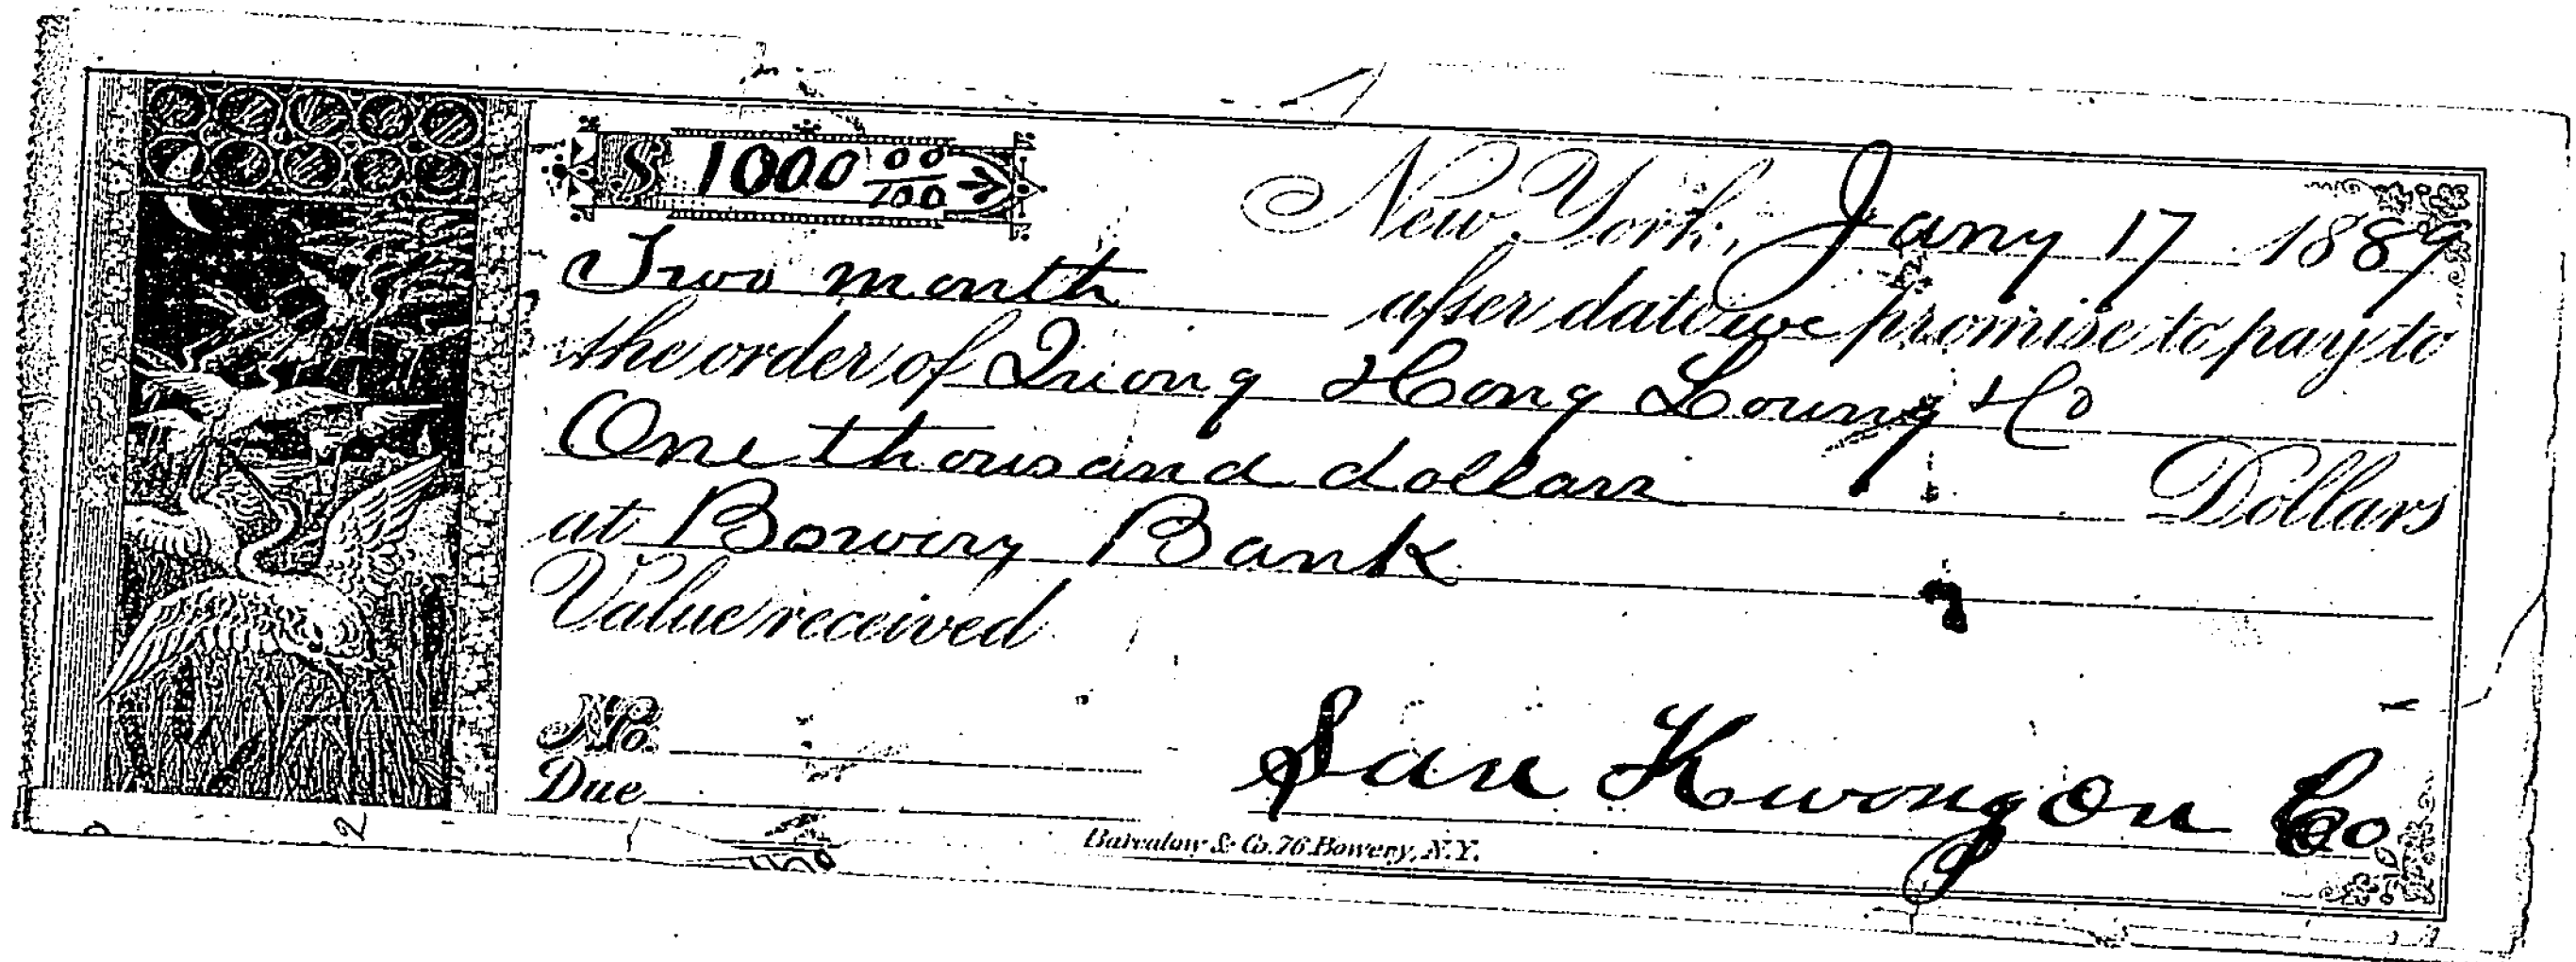 $ 1000 00/100
New York, Jany 17 1889
Two month after date we promise to pay to
the order of Quong Hong Loung & Co
One thousand dollars Dollars
at Bowery Bank
Value received
No.
Due
San Kwong On Co